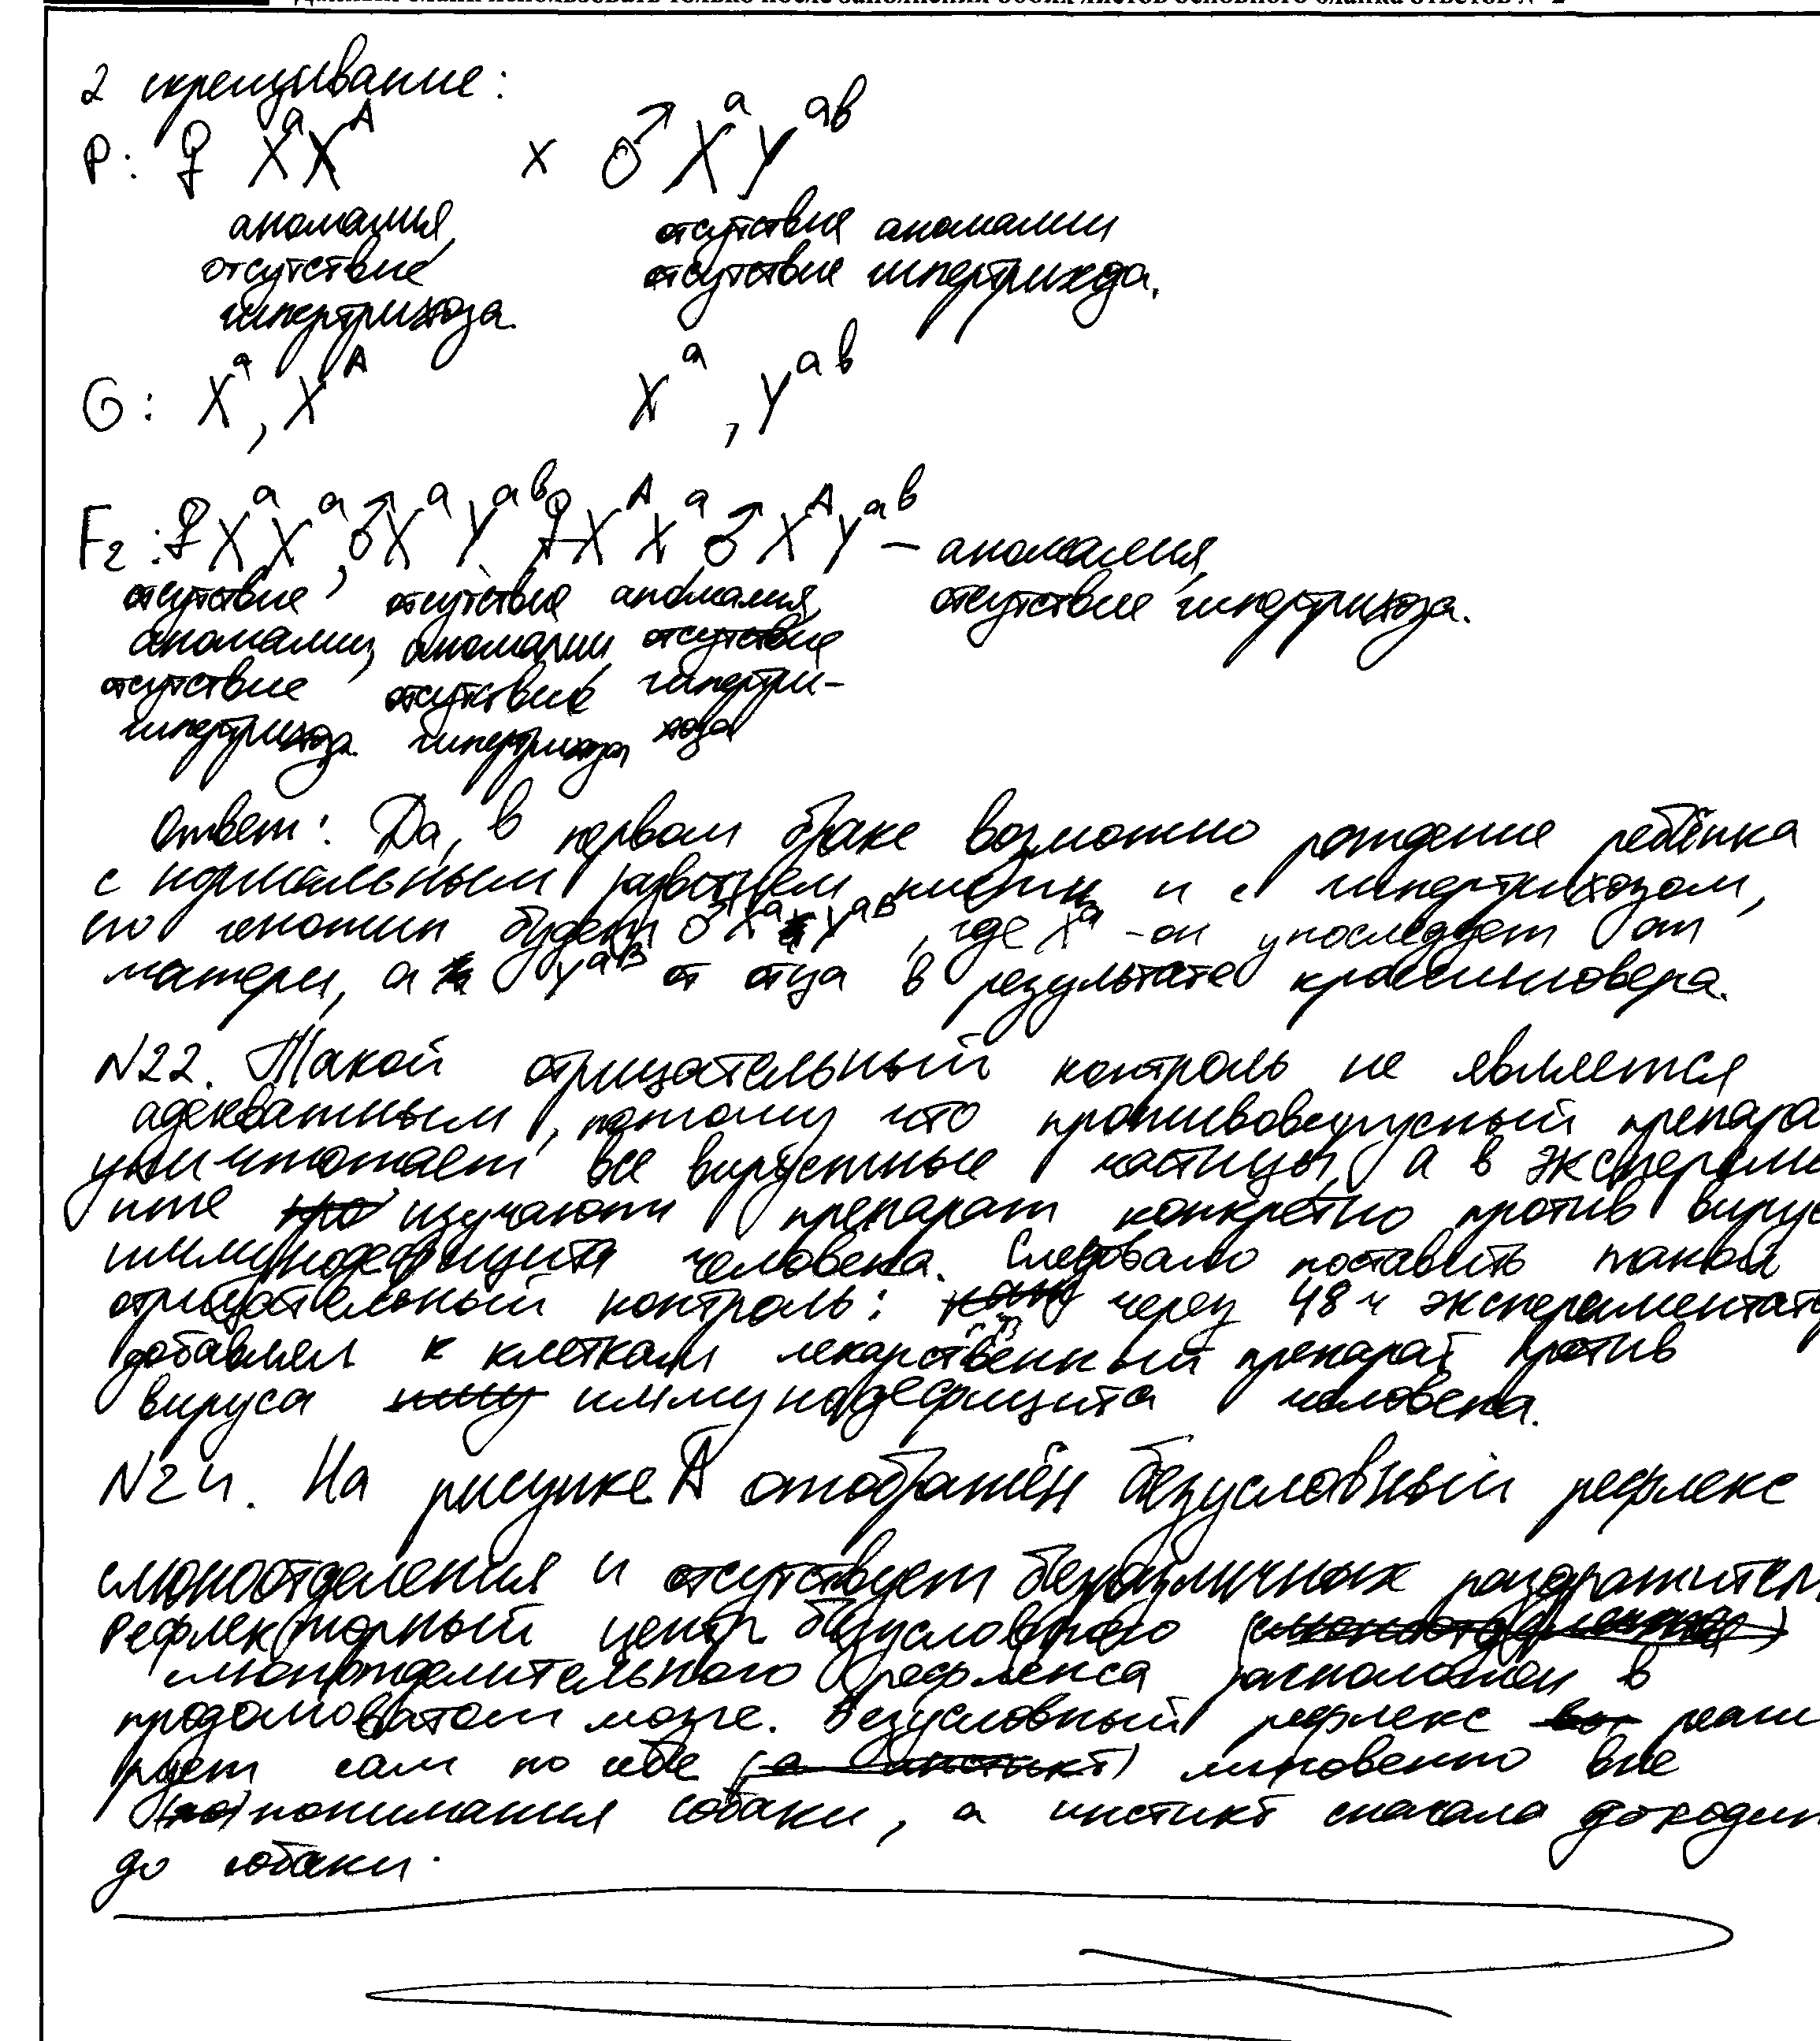 Данный бланк использовать только после заполнения обоих листов основного бланка ответов № 2
2 скрещивание:
P: ♀ XᵃXᴬ x ♂ XᵃYᵃᵇ
аномалия, отсутствие аномалии
отсутствие отсутствие гипертрихоза.
гипертрихоза.
G: Xᵃ, Xᴬ Xᵃ, Yᵃᵇ
F₂: ♀XᵃXᵃ, ♂XᵃYᵃᵇ, ♀XᴬXᵃ, ♂XᴬYᵃᵇ – аномалия,
отсутствие отсутствие аномалия, отсутствие гипертрихоза.
аномалии, аномалии, отсутствие
отсутствие отсутствие гипертри-
гипертрихоза гипертрихоза, хоза
Ответ: Да, в первом браке возможно рождение ребёнка
с нормальным развитием кисти и с гипертрихозом,
его генотип будет ♂XᵃYᵃᴮ, где Xᵃ - он унаследует от
матери, а Yᵃᴮ от отца в результате кроссинговера.
N22. Такой отрицательный контроль не является
адекватным, потому что противовирусный препара
уничтожает все вирусные частицы, а в эксперим
нте изучают препарат конкретно против вирус
иммунодефицита человека. Следовало поставить такой
отрицательный контроль: через 48 ч экспериментато
добавлял к клеткам лекарственный препарат против
вируса иммунодефицита человека.
N24. На рисунке А отображён безусловный рефлекс
слюноотделения и отсутствует безразличных раздражител
Рефлекторный центр безусловного
слюноотделительного рефлекса расположен в
продолговатом мозге. Безусловный рефлекс реаги
рует сам по себе мгновенно вне
понимания собаки, а инстикт сначала доходит
до собаки.